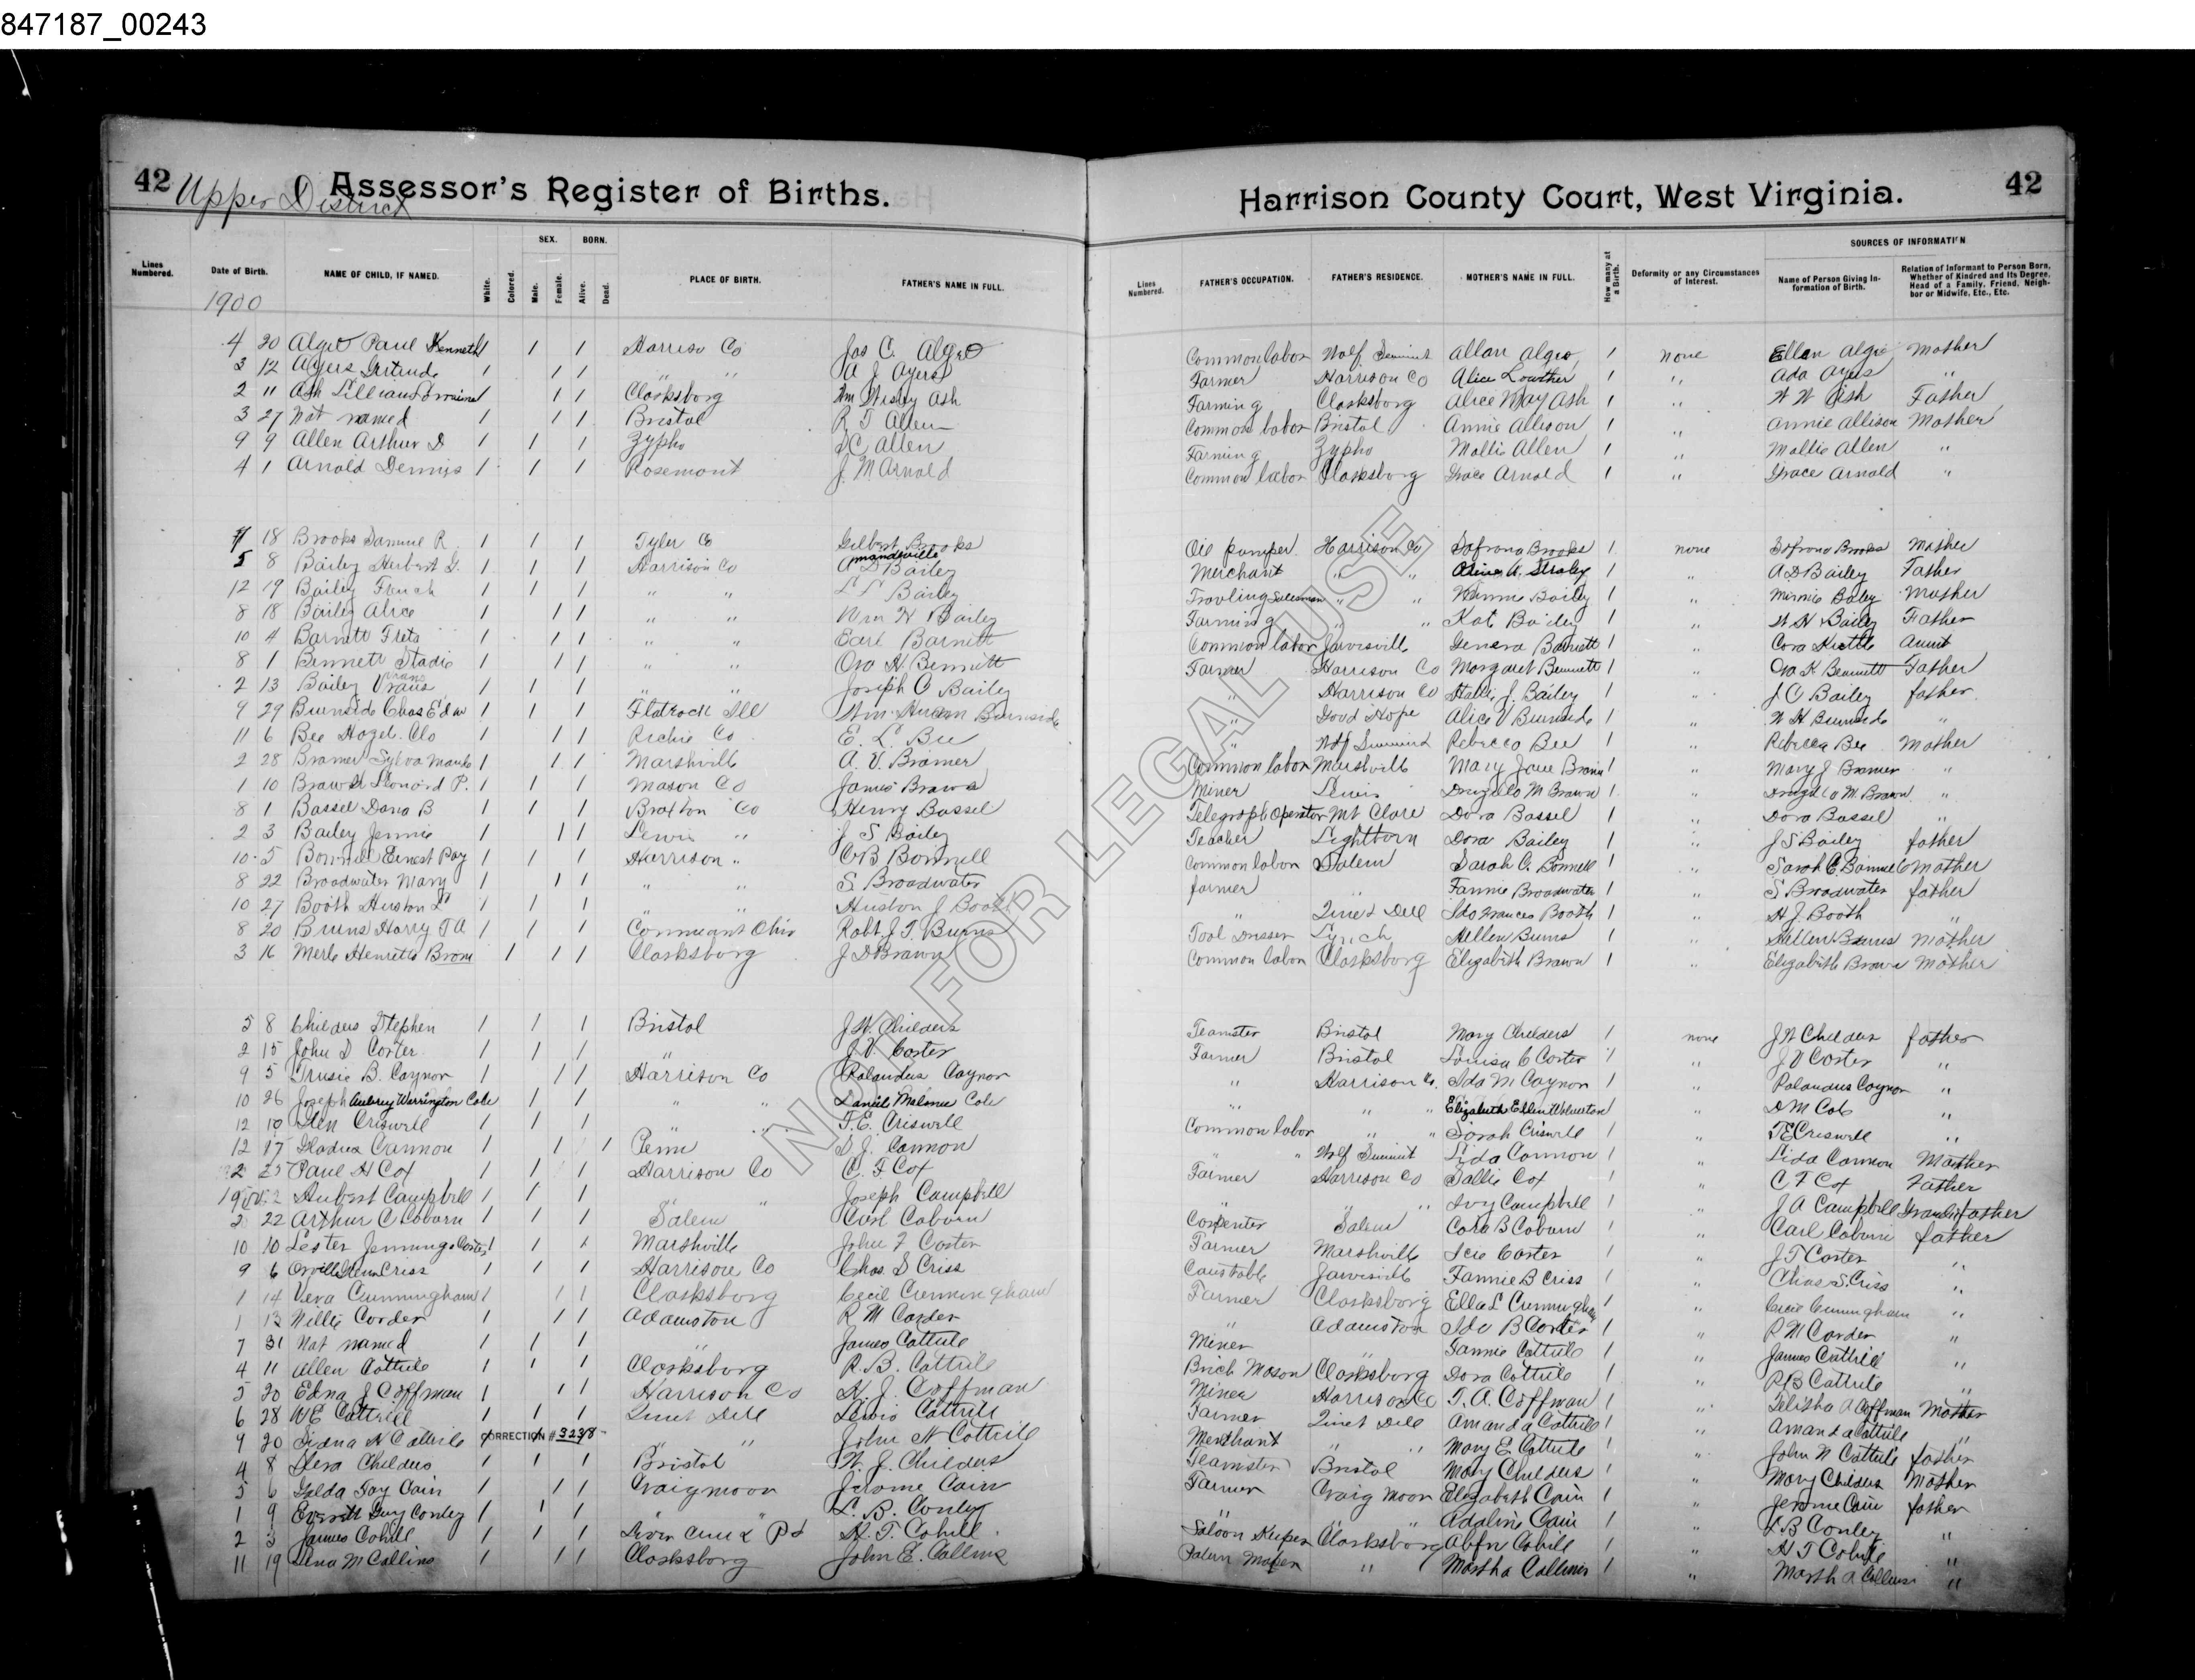 847187_00243
42 Upper District Assessor's Register of Births.
Harrison County Court, West Virginia. 42
Lines Numbered. Date of Birth. NAME OF CHILD, IF NAMED. White. Colored. SEX. Male. Female. BORN. Alive. Dead. PLACE OF BIRTH. FATHER'S NAME IN FULL.
Lines Numbered. FATHER'S OCCUPATION. FATHER'S RESIDENCE. MOTHER'S NAME IN FULL. How many at a Birth. Deformity or any Circumstances of Interest. SOURCES OF INFORMATION Name of Person Giving Information of Birth. Relation of Informant to Person Born, Whether of Kindred and Its Degree, Head of a Family, Friend, Neighbor or Midwife, Etc., Etc.
1900
4 20 Algeo Paul Kenneth 1 1 1 Harrison Co Jas C. Algeo Common labor Wolf Summit Allan Algeo 1 none Ellen Algeo Mother
3 12 Ayers Gertrude 1 1 1 " " A J Ayers Farmer Harrison Co Alice Lowther 1 " Ada Ayers "
2 11 Ash Lillian Lorraine 1 1 Clarksburg Wm Wesley Ash Farming Clarksburg Alice May Ash 1 " W W Ash Father
3 27 Not named 1 1 1 Bristol R T Allen Common labor Bristol Annie Allison 1 " Annie Allison Mother
9 9 Allen Arthur D 1 1 1 Zypho Allen Farming Zypho Mollie Allen 1 " Mollie Allen "
4 1 Arnold Dennis 1 1 1 Rosemont J. M Arnold Common labor Clarksburg Grace Arnold 1 " Grace Arnold "
18 Brooks Samuel R 1 1 1 Tyler Co Gilbert Brooks Oil pumper Harrison Co Safrona Brooks 1 none Safrona Brooks Mother
5 8 Bailey Herbert G. 1 1 1 Harrison Co Amandeville D Bailey Merchant " " Straley 1 " A D Bailey Father
12 19 Bailey French 1 1 1 " " Bailey Travling Salesman " " Minnie Bailey 1 " Minnie Bailey Mother
8 18 Bailey Alice 1 1 1 " " Wm H Bailey Farming " " Kate Bailey 1 " W H Bailey Father
10 4 Barnett Freta 1 1 1 " " Earl Barnett Common labor Jarvisville Geneva Barnett 1 " Cora Aunt
8 1 Bennett Stadie 1 1 1 " " Ora H Bennett Farmer Harrison Co Margaret Bennett 1 " Bennett Father
2 13 Bailey 1 1 1 " " Joseph C Bailey " Harrison Co J. Bailey 1 " J C Bailey father
9 29 Burnside Chas Edw 1 1 1 Flatrock Ill Wm Burnside " Good Hope Alice V Burnside 1 " W H Burnside "
11 6 Bee Hazel Clo 1 1 1 Richie Co E. L. Bee " Wolf Summit Rebecca Bee 1 " Rebecca Bee Mother
2 28 Bramer Sylva 1 1 1 Marshville A. V. Bramer Common labor Marshville Mary Jane 1 " Mary J. Bramer "
1 10 Brown Leonard P. 1 1 1 Mason Co James Brown Miner Lewis M Brown 1 " M. Brown "
8 1 Bassel Dana B 1 1 1 Braxton Co Henry Bassel Telegraph Operator Mt Clare Dora Bassel 1 " Dora Bassel "
2 3 Bailey Jennie 1 1 1 Lewis " J S Bailey Teacher Lightburn Dora Bailey 1 " J S Bailey father
10 5 Bonnell Ernest Ray 1 1 1 Harrison " Bonnell Common labor Salem Sarah C. Bonnell 1 " Sarah C. Bonnell Mother
8 22 Broadwater Mary 1 1 1 " " S. Broadwater farmer " Fannie Broadwater 1 " S Broadwater father
10 27 Booth Huston L 1 1 1 " " Huston J Booth " Quiet Dell Ida Frances Booth 1 " H J. Booth "
8 20 Burns Harry T A 1 1 1 Conneaut Ohio Robt J. T. Burns Tool Dresser Lynch Hellen Burns 1 " Hellen Burns Mother
3 16 Merle Henrietta Brown 1 1 1 Clarksburg J D Brown Common labor Clarksburg Elizabeth Brown 1 " Elizabeth Brown Mother
5 8 Childers Stephen 1 1 1 Bristol J. W. Childers Teamster Bristol Mary Childers 1 none J W Childers father
2 15 John D Coster 1 1 1 " J. V. Coster Farmer Bristol Louisa C Coster 1 " J V Coster "
9 5 Trusie B. Caynor 1 1 1 Harrison Co Rolandus Caynor " Harrison Co. Ida M Caynor 1 " Rolandus Caynor "
10 26 Joseph Aubrey Warrington Cole 1 1 " " Daniel Malone Cole " " " Elizabeth Ellen Wolverton " D M Cole "
12 19 Glen Criswell 1 1 1 " " T. E. Criswell Common labor " " Sarah Criswell 1 " T E Criswell "
12 17 Gladus Cannon 1 1 1 Penn D. J. Cannon " " Wolf Summit Lida Cannon 1 " Lida Cannon Mother
2 25 Paul H Cox 1 1 1 Harrison Co C. F Cox Farmer Harrison Co Sallie Cox 1 " C F Cox Father
Hubert Campbell 1 1 1 " " Joseph Campbell " " " Ivy Campbell 1 " J A Campbell Grandfather
2 22 Arthur C Coburn 1 1 1 Salem Carl Coburn Carpenter Salem Cora B Coburn 1 " Carl Coburn father
10 10 Lester Jennings Coster 1 1 1 Marshville John F Coster Farmer Marshville Icie Coster 1 " J F Coster "
9 6 Orville Glenn Criss 1 1 1 Harrison Co Chas. S Criss Constable Jarvisville Fannie B Criss 1 " Chas S. Criss "
1 14 Vera Cunningham 1 1 1 Clarksburg Cecil Cunningham Farmer Clarksburg Ella L Cunningham 1 " Cecil Cunningham "
1 13 Willie Corder 1 1 1 Adamston R M Corder " Adamston Ida B Corder 1 " R M Corder "
7 31 Not named 1 1 1 " James Cottrile Miner " Fannie Cottrile 1 " James Cottrile "
4 11 Allen Cottrile 1 1 1 Clarksburg R. B. Cottrile Brick Mason Clarksburg Dora Cottrile 1 " R B Cottrile "
5 20 Edna J Coffman 1 1 1 Harrison Co H. J. Coffman Miner Harrison Co T. A. Coffman 1 " Telitha A Coffman Mother
6 28 W E Cottrill 1 1 1 Quiet Dell Lewis Cottrill Farmer Quiet Dell Amanda Cottrill 1 " Amanda Cottrile "
9 20 N Cottrile CORRECTION # 3238 " " John N Cottrile Merchant " " Mary E Cottrile 1 " John N Cottrile father
4 8 Childers 1 1 1 Bristol W. J. Childers Teamster Bristol Mary Childers 1 " Mary Childers Mother
5 6 Golda Fay Cain 1 1 1 Craigmoon Jerome Cain Farmer Craig Moon Elizabeth Cain 1 " Jerome Cain father
1 9 Everett Guy Conley 1 1 1 " " L. B. Conley " " " Adaline Cain 1 " L B Conley "
2 3 James Cohill 1 1 1 H. T. Cohill Saloon Keeper Clarksburg Cohill 1 " H T Cohill "
11 19 Lena M Collins 1 1 1 Clarksburg John E. Collins " Martha Collins 1 " Martha Collins "
NOT FOR LEGAL USE